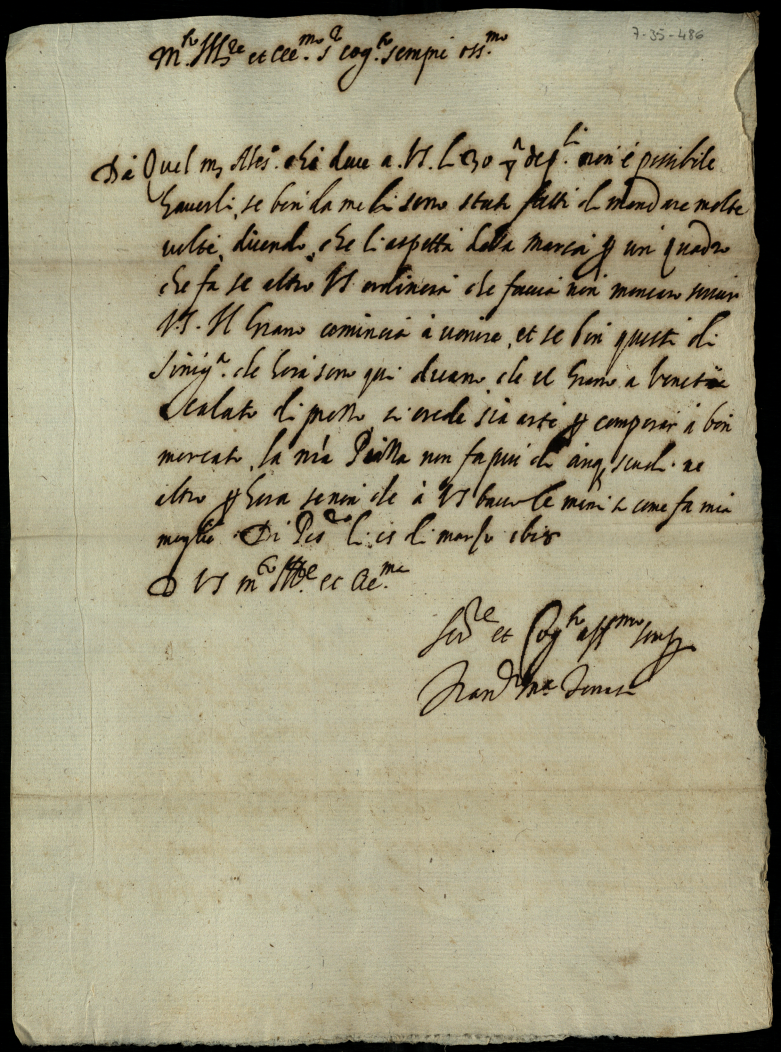 7-35-486
M.to Ill.re et Ecc.mo S.r Cog.to sempre oss.mo
Da Quel m Ales.o che deve a VS. L 30 non è possibile
haverli, se ben da me li sono stati fatti di mandare molte
volte, dicendo, che li aspetta dalla Marca p un quadro
che fa se altro VS ordinerà che faccia non mancarò servir
VS. Il Grano comincia à venire, et se ben questi di
Sinig.a che hora sono qui dicano che il Grano a Venetia
è calato di prezzo, si crede sia arte p comperar à bon
mercato, la mia Pia non fa più di cinq scudi. ne
altro p hora se non che à VS bacio le mani si come fa mia
moglie. Di Pes.ro li di marzo
D VS m.to Ill.re et Ecc.ma
Ser.re et Cog.to aff.mo semp
Fran.o M.a